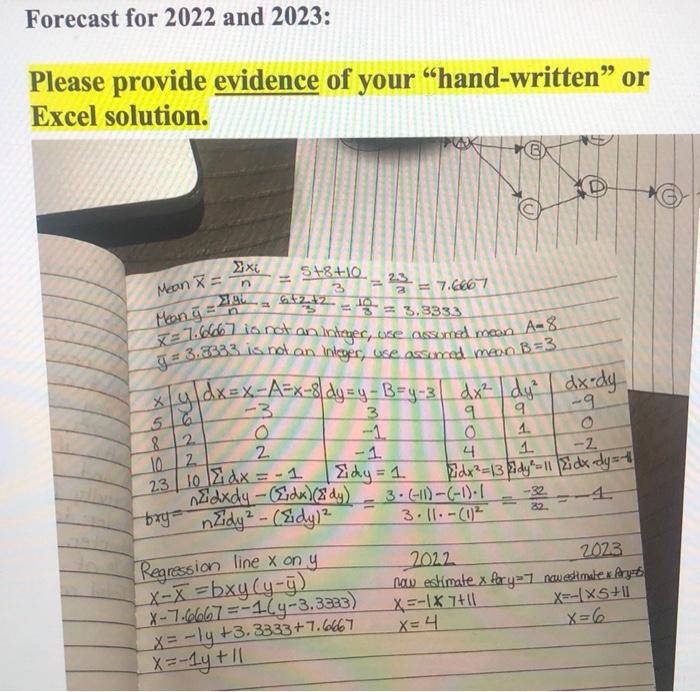 Forecast for 2022 and 2023:
Please provide evidence of your “hand-written” or
Excel solution.
B
C
D
G
Mean x̄ = Σxi/n = 5+8+10/3 = 23/3 = 7.6667
Mean ȳ = Σyi/n = 6+2+2/3 = 10/3 = 3.3333
x̄ = 7.6667 is not an integer, use assumed mean A=8
ȳ = 3.3333 is not an integer, use assumed mean B=3
x y dx=x-A=x-8 dy=y-B=y-3 dx² dy² dx·dy
5 6 -3 3 9 9 -9
8 2 0 -1 0 1 0
10 2 2 -1 4 1 -2
23 10 Σdx = -1 Σdy = 1 Σdx²=13 Σdy²=11 Σdx·dy=-11
bxy = nΣdxdy - (Σdx)(Σdy) / nΣdy² - (Σdy)² = 3·(-11)-(-1)·1 / 3·11·-(1)² = -32/32 = -1
Regression line x on y 2022 2023
x-x̄ = bxy(y-ȳ) now estimate x for y=7 now estimate x for
x-7.6667=-1(y-3.3333) x=-1×7+11 x=-1×5+11
x= -1y+3.3333+7.6667 x=4 x=6
x=-1y+11